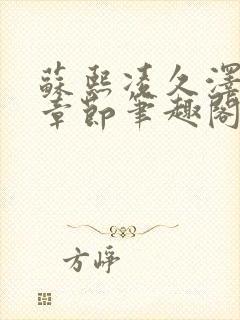 蘇熙凌久澤
章節筆趣閣
方崢